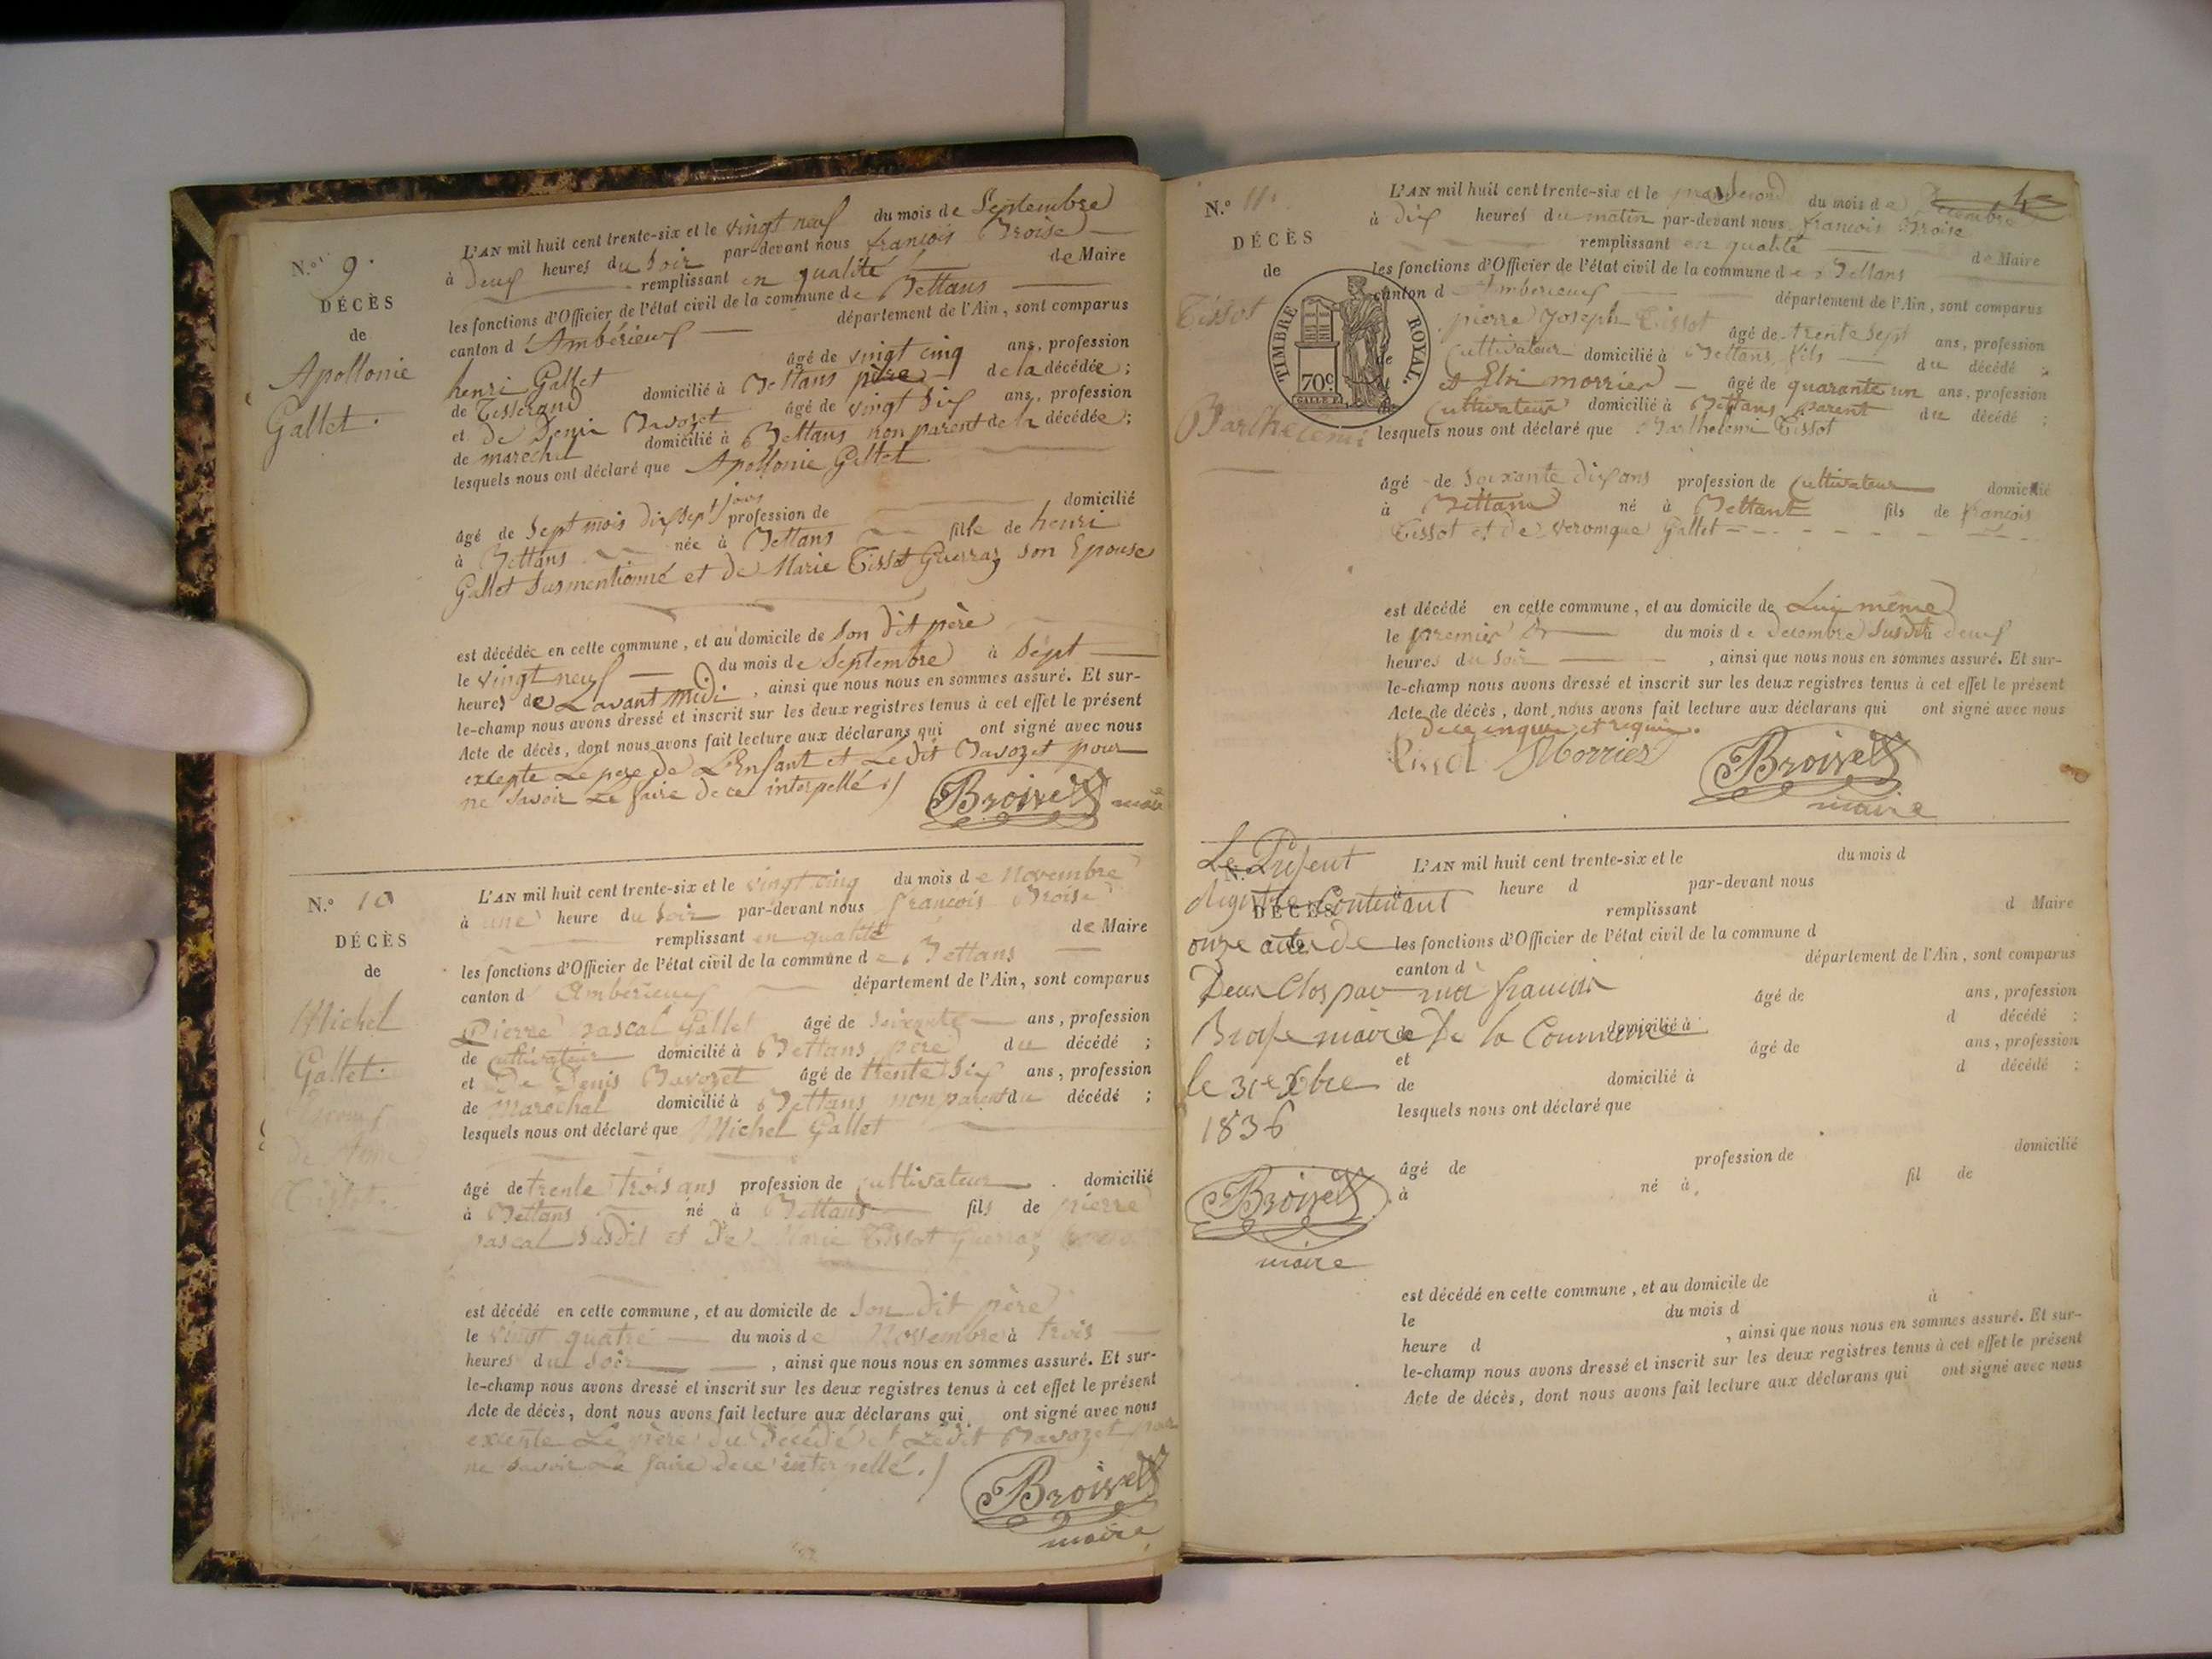 N.º 9.
DÉCÈS
de
Apollonie
Gallet.
L'AN mil huit cent trente-six et le vingt neuf du mois de Septembre
à deux heures du soir par-devant nous françois Broise
remplissant en qualité de Maire
les fonctions d'Officier de l'état civil de la commune de Bettans
canton d'Ambérieux département de l'Ain, sont comparus
henri Gallet âgé de vingt cinq ans, profession
de Tisserand domicilié à Bettans père de la décédée;
et de Denis Bavozet âgé de vingt six ans, profession
de marechal domicilié à Bettans non parent de la décédée;
lesquels nous ont déclaré que Apollonie Gallet
âgé de Sept mois dix sept jours profession de domicilié
à Bettans née à Bettans fille de henri
Gallet Susmentionné et de Marie Tissot Guerraz son Epouse
est décédée en cette commune, et au domicile de son dit père
le vingt neuf du mois de Septembre à Sept
heures de Lavant midi, ainsi que nous nous en sommes assuré. Et sur-
le-champ nous avons dressé et inscrit sur les deux registres tenus à cet effet le présent
Acte de décès, dont nous avons fait lecture aux déclarans qui ont signé avec nous
excepte Le pere de L'Enfant et Ledit Bavozet pour
ne Savoir Le faire de ce interpellé ./
Broise
maire
N.º 10
DÉCÈS
de
Michel
Gallet.
Tissot.
L'AN mil huit cent trente-six et le vingt cinq du mois de Novembre
à une heure du Soir par-devant nous françois Broise
remplissant en qualité de Maire
les fonctions d'Officier de l'état civil de la commune de Bettans
canton d'Ambérieux département de l'Ain, sont comparus
Pierre pascal Gallet âgé de soixante ans, profession
de cultivateur domicilié à Bettans père du décédé;
et de Denis Bavozet âgé de trente six ans, profession
de Marechal domicilié à Bettans non parent du décédé;
lesquels nous ont déclaré que Michel Gallet
âgé de trente trois ans profession de cultivateur domicilié
à Bettans né à Bettans fils de pierre
pascal Susdit et de Marie Tissot Guerraz
est décédé en cette commune, et au domicile de Son dit père
le vingt quatre du mois de Novembre à trois
heures du Soir, ainsi que nous nous en sommes assuré. Et sur-
le-champ nous avons dressé et inscrit sur les deux registres tenus à cet effet le présent
Acte de décès, dont nous avons fait lecture aux déclarans qui ont signé avec nous
excepte Le père du Décédé et Ledit Bavozet pour
ne Savoir Le faire de ce interpellé ./
Broise
maire
N.º 11.
DÉCÈS
de
Tissot
Barthelemi
TIMBRE ROYAL.
70c
L'AN mil huit cent trente-six et le second du mois de Décembre
à dix heures du matin par-devant nous françois Broise
remplissant en qualité de Maire
les fonctions d'Officier de l'état civil de la commune de Bettans
canton d'Ambérieux département de l'Ain, sont comparus
pierre Joseph Tissot âgé de trente Sept ans, profession
de Cultivateur domicilié à Bettans fils du décédé;
et Eloi morrier âgé de quarante un ans, profession
de Cultivateur domicilié à Bettans parent du décédé;
lesquels nous ont déclaré que Barthelemi Tissot
âgé de Soixante dix ans profession de Cultivateur domicilié
à Bettans né à Bettans fils de françois
Tissot et de veronique Gallet
est décédé en cette commune, et au domicile de Lui même
le premier du mois de decembre Susdit à deux
heures du Soir, ainsi que nous nous en sommes assuré. Et sur-
le-champ nous avons dressé et inscrit sur les deux registres tenus à cet effet le présent
Acte de décès, dont nous avons fait lecture aux déclarans qui ont signé avec nous
de ce enquis et requis.
Tissot Morrier Broise
maire
Le Présent
Registre Contenant
onze actes de
Deces Clos par moi françois
Broise maire De la Commune
le 31 Xbre
1836
Broise
maire
N.º
DÉCÈS
de
L'AN mil huit cent trente-six et le du mois d
à heure d par-devant nous
remplissant d Maire
les fonctions d'Officier de l'état civil de la commune d
canton d département de l'Ain, sont comparus
âgé de ans, profession
de domicilié à d décédé;
et âgé de ans, profession
de domicilié à d décédé;
lesquels nous ont déclaré que
âgé de profession de domicilié
à né à fil de
est décédé en cette commune, et au domicile de
le du mois d à
heure d, ainsi que nous nous en sommes assuré. Et sur-
le-champ nous avons dressé et inscrit sur les deux registres tenus à cet effet le présent
Acte de décès, dont nous avons fait lecture aux déclarans qui ont signé avec nous